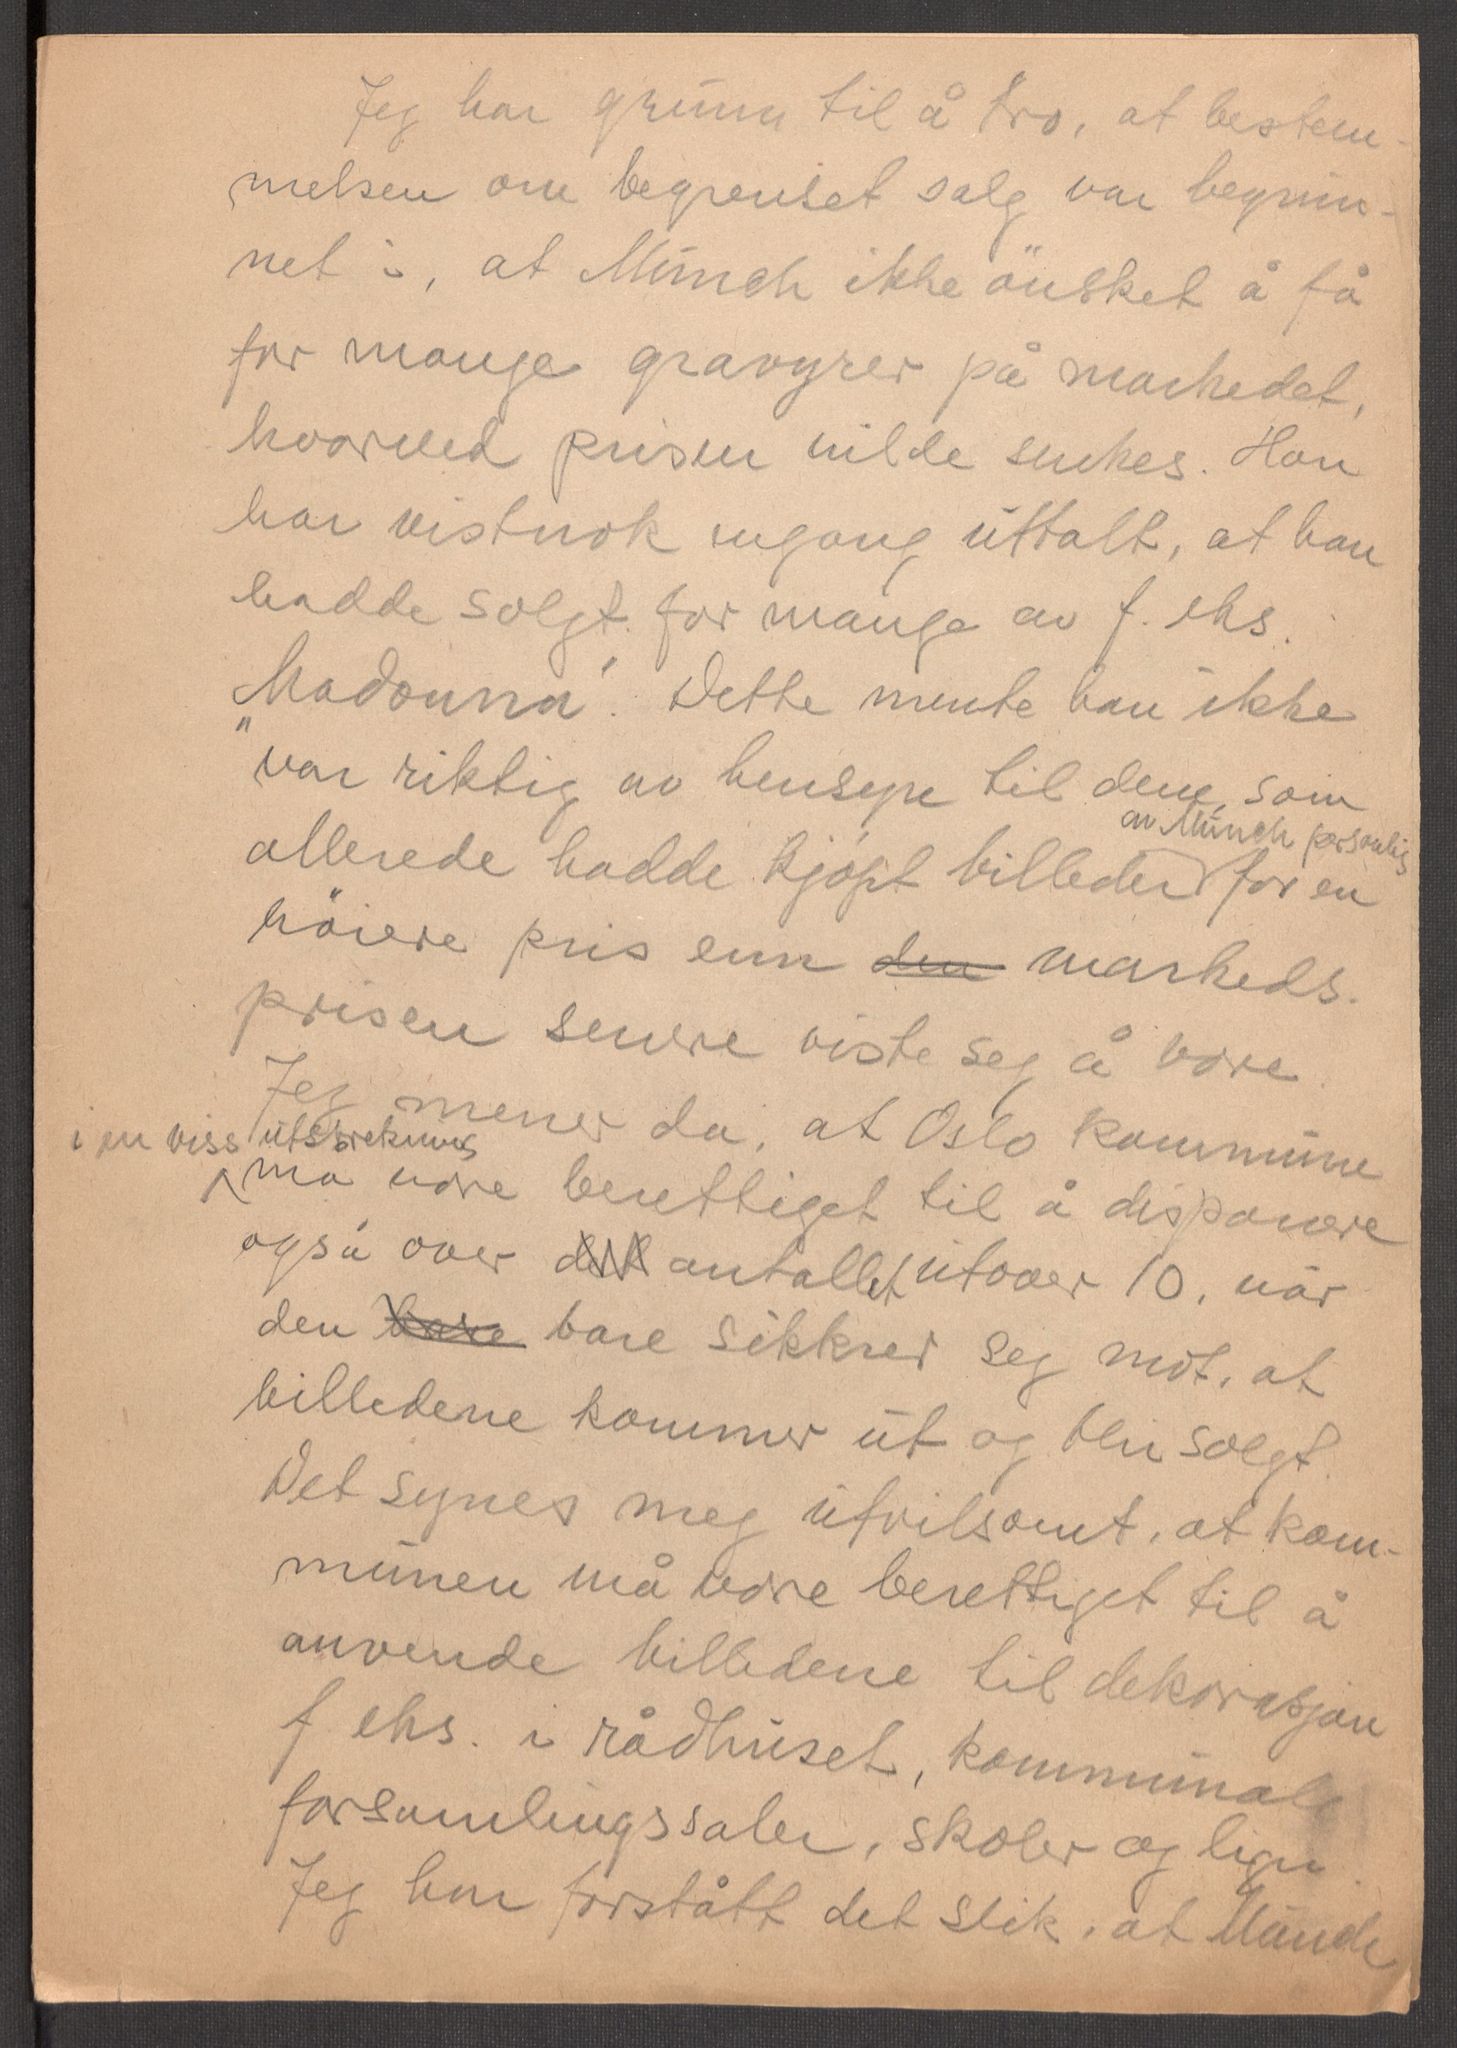 Jeg har grunn til å tro, at bestem-
melsen om begrenset salg var begrun-
net i, at Munch ikke önsket å få
for mange gravyrer på markedet,
hvorved prisen vilde senkes. Han
har vistnok engang uttalt, at han
hadde solgt for mange av f. eks.
„Madonna“. Dette mente han ikke
var riktig av hensyn til dem, som
av Munch personlig
allerede hadde kjöpt billeder for en
höiere pris enn den markeds-
prisen senere viste seg å være
Jeg mener da, at Oslo kommune
i en viss utstrekning
må være berettiget til å disponere
også over det antallet utover 10, når
den bare bare sikkrer seg mot, at
billedene kommer ut og blir solgt.
Det synes meg utvilsomt, at kom-
munen må være berettiget til å
anvende billedene til dekorasjon
f. eks. i rådhuset, kommunale
forsamlingssaler, skoler og lign.
Jeg har forstått det slik, at Munch